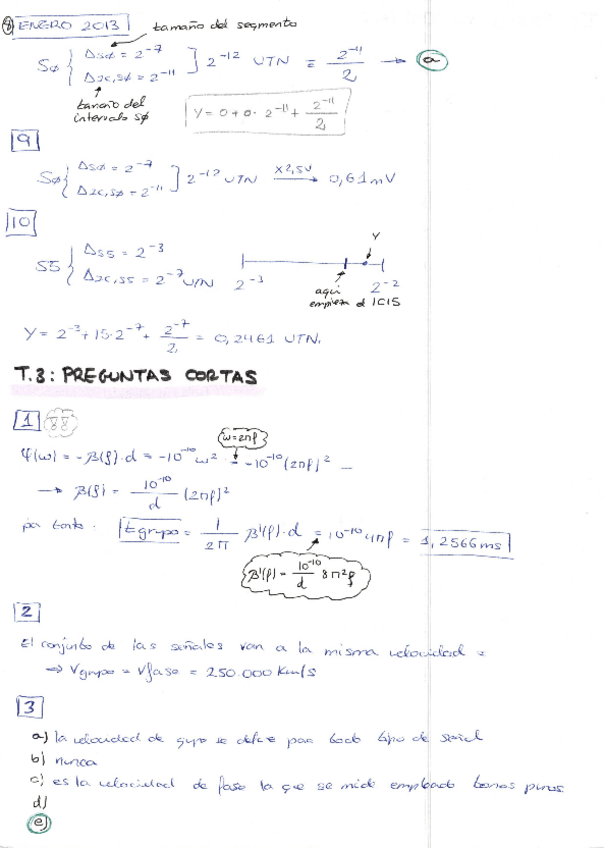 8) ENERO 2013
tamaño del segmento
SØ { ΔSØ = 2^-7
Δic,SØ = 2^-11 ] 2^-12 UTN = 2^-11/2 → a
tamaño del
intervalo SØ
Y = 0 + 0 · 2^-11 + 2^-11/2
9
SØ { ΔSØ = 2^-7
Δic,SØ = 2^-11 ] 2^-12 UTN x2,5V → 0,61 mV
10
S5 { ΔS5 = 2^-3
Δic,S5 = 2^-7 UTN
2^-3 2^-2
Y
aquí
empieza el IC15
Y = 2^-3 + 15·2^-7 + 2^-7/2 = 0,2461 UTN.
T.3: PREGUNTAS CORTAS
1 88
ω=2πf
φ(ω) = -β(f)·d = -10^-10 ω² = -10^-10 (2πf)²
→ β(f) = 10^-10/d (2πf)²
por tanto. tgrupo = 1/2π β'(f)·d = 10^-10 4πf = 1,2566 ms
β'(f) = 10^-10/d 8π²f
2
El conjunto de las señales van a la misma velocidad
⇒ Vgrupo = Vfase = 250.000 Km/s
3
a) la velocidad de grupo se define para todo tipo de señal
b) nunca
c) es la velocidad de fase la que se mide empleado tonos puros
d)
e)